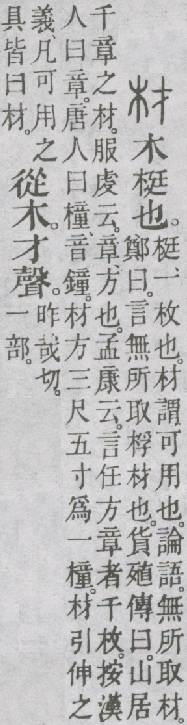 材木梃也。
梃一枚也。材謂可用也。論語。無所取材
鄭曰。言無所取桴材也。貨殖傳曰。山居
千章之材。服虔云。章、方也。孟康云。言任方章者千枚。按漢
人曰章。唐人曰橦、音鐘。材方三尺五寸爲一橦。材引伸之
義、凡可用之
具皆曰材。
從木。才聲。
昨哉切。
一部。